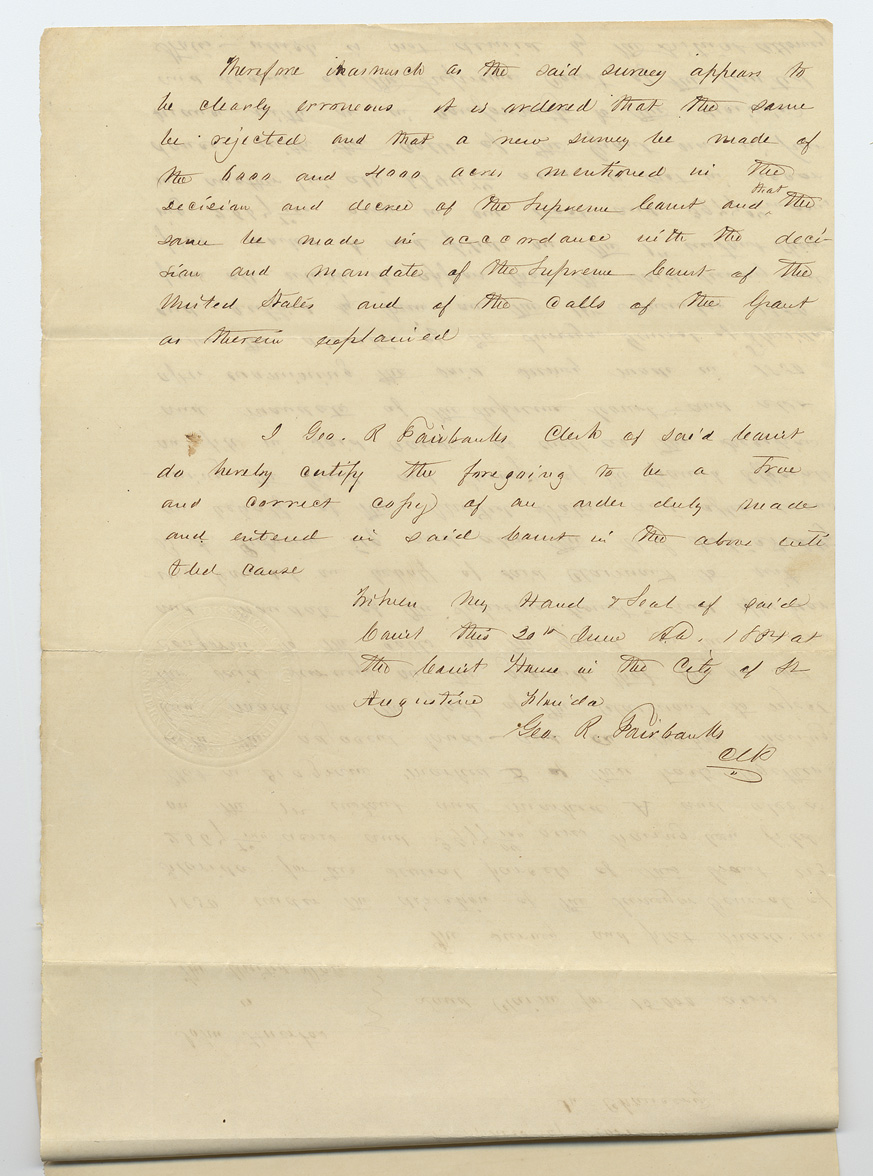 Therefore inasmuch as the said survey appears to
be clearly erroneous it is ordered that the same
be rejected and that a new survey be made of
the 6000 and 4000 acres mentioned in the
decision and decree of the Supreme Court and that the
same be made in acccordance with the deci-
sion and mandate of the Supreme Court of the
United States and of the calls of the Grant
as therein explained
I Geo. R Fairbanks Clerk of said Court
do hereby certify the foregoing to be a True
and correct copy of an order duly made
and entered in said Court in the above enti
tled cause
Witness my Hand & Seal of said
Court this 20th June AD. 1854 at
the Court House in the City of St
Augustine Florida
Geo. R. Fairbanks
Clk